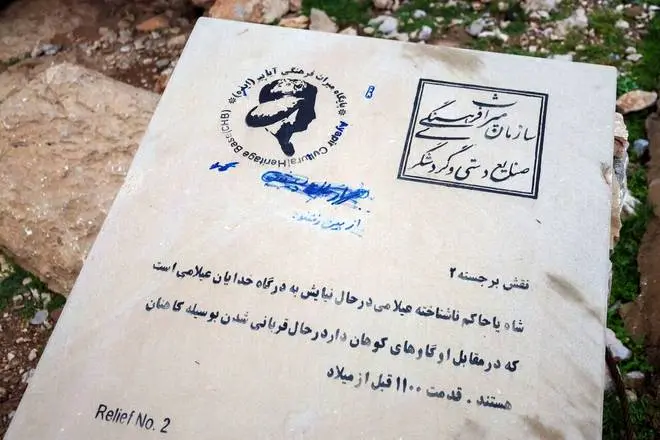 پایگاه میراث فرهنگی آیاپیر (ایذه)
Ayapir Cultural Heritage Base(CHB)
سازمان میراث فرهنگی
صنایع دستی و گردشگری
از بین
نقش برجسته ۲
شاه یا حاکم ناشناخته عیلامی درحال نیایش به درگاه خدایان عیلامی است
که درمقابل او گاوهای کوهان دار درحال قربانی شدن بوسیله کاهنان
هستند . قدمت ۱۱۰۰ قبل از میلاد
Relief No. 2